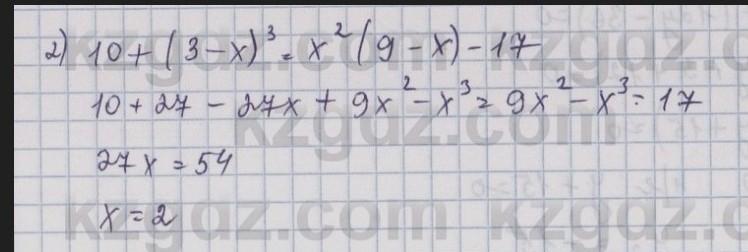 2) 10 + (3 - x)³ = x² (9 - x) - 17
10 + 27 - 27x + 9x² - x³ = 9x² - x³ - 17
27x = 54
x = 2
kzgdz.com kzgdz.com
kzgdz.com
kzgdz.com kzgdz.com